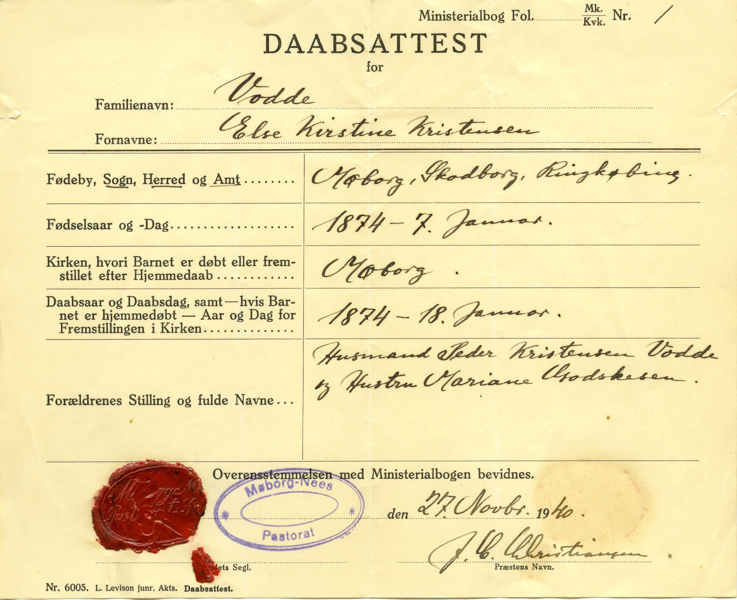 Ministerialbog Fol. Mk. Kvk. Nr. 1
DAABSATTEST
for
Familienavn: Vodde
Fornavne: Else Kirstine Kristensen
Fødeby, Sogn, Herred og Amt Møborg, Skodborg, Ringkøbing.
Fødselsaar og -Dag 1874 – 7. Januar.
Kirken, hvori Barnet er døbt eller frem-
stillet efter Hjemmedaab Møborg.
Daabsaar og Daabsdag, samt — hvis Bar-
net er hjemmedøbt — Aar og Dag for
Fremstillingen i Kirken 1874 – 18. Januar.
Husmand Peder Kristensen Vodde
og Hustru Mariane Godskesen.
Forældrenes Stilling og fulde Navne
Overensstemmelsen med Ministerialbogen bevidnes.
Møborg-Nees
Pastorat
den 27. Novbr. 1940.
J. C. Christiansen
Segl.
Præstens Navn.
Nr. 6005. L. Levison junr. Akts. Daabsattest.